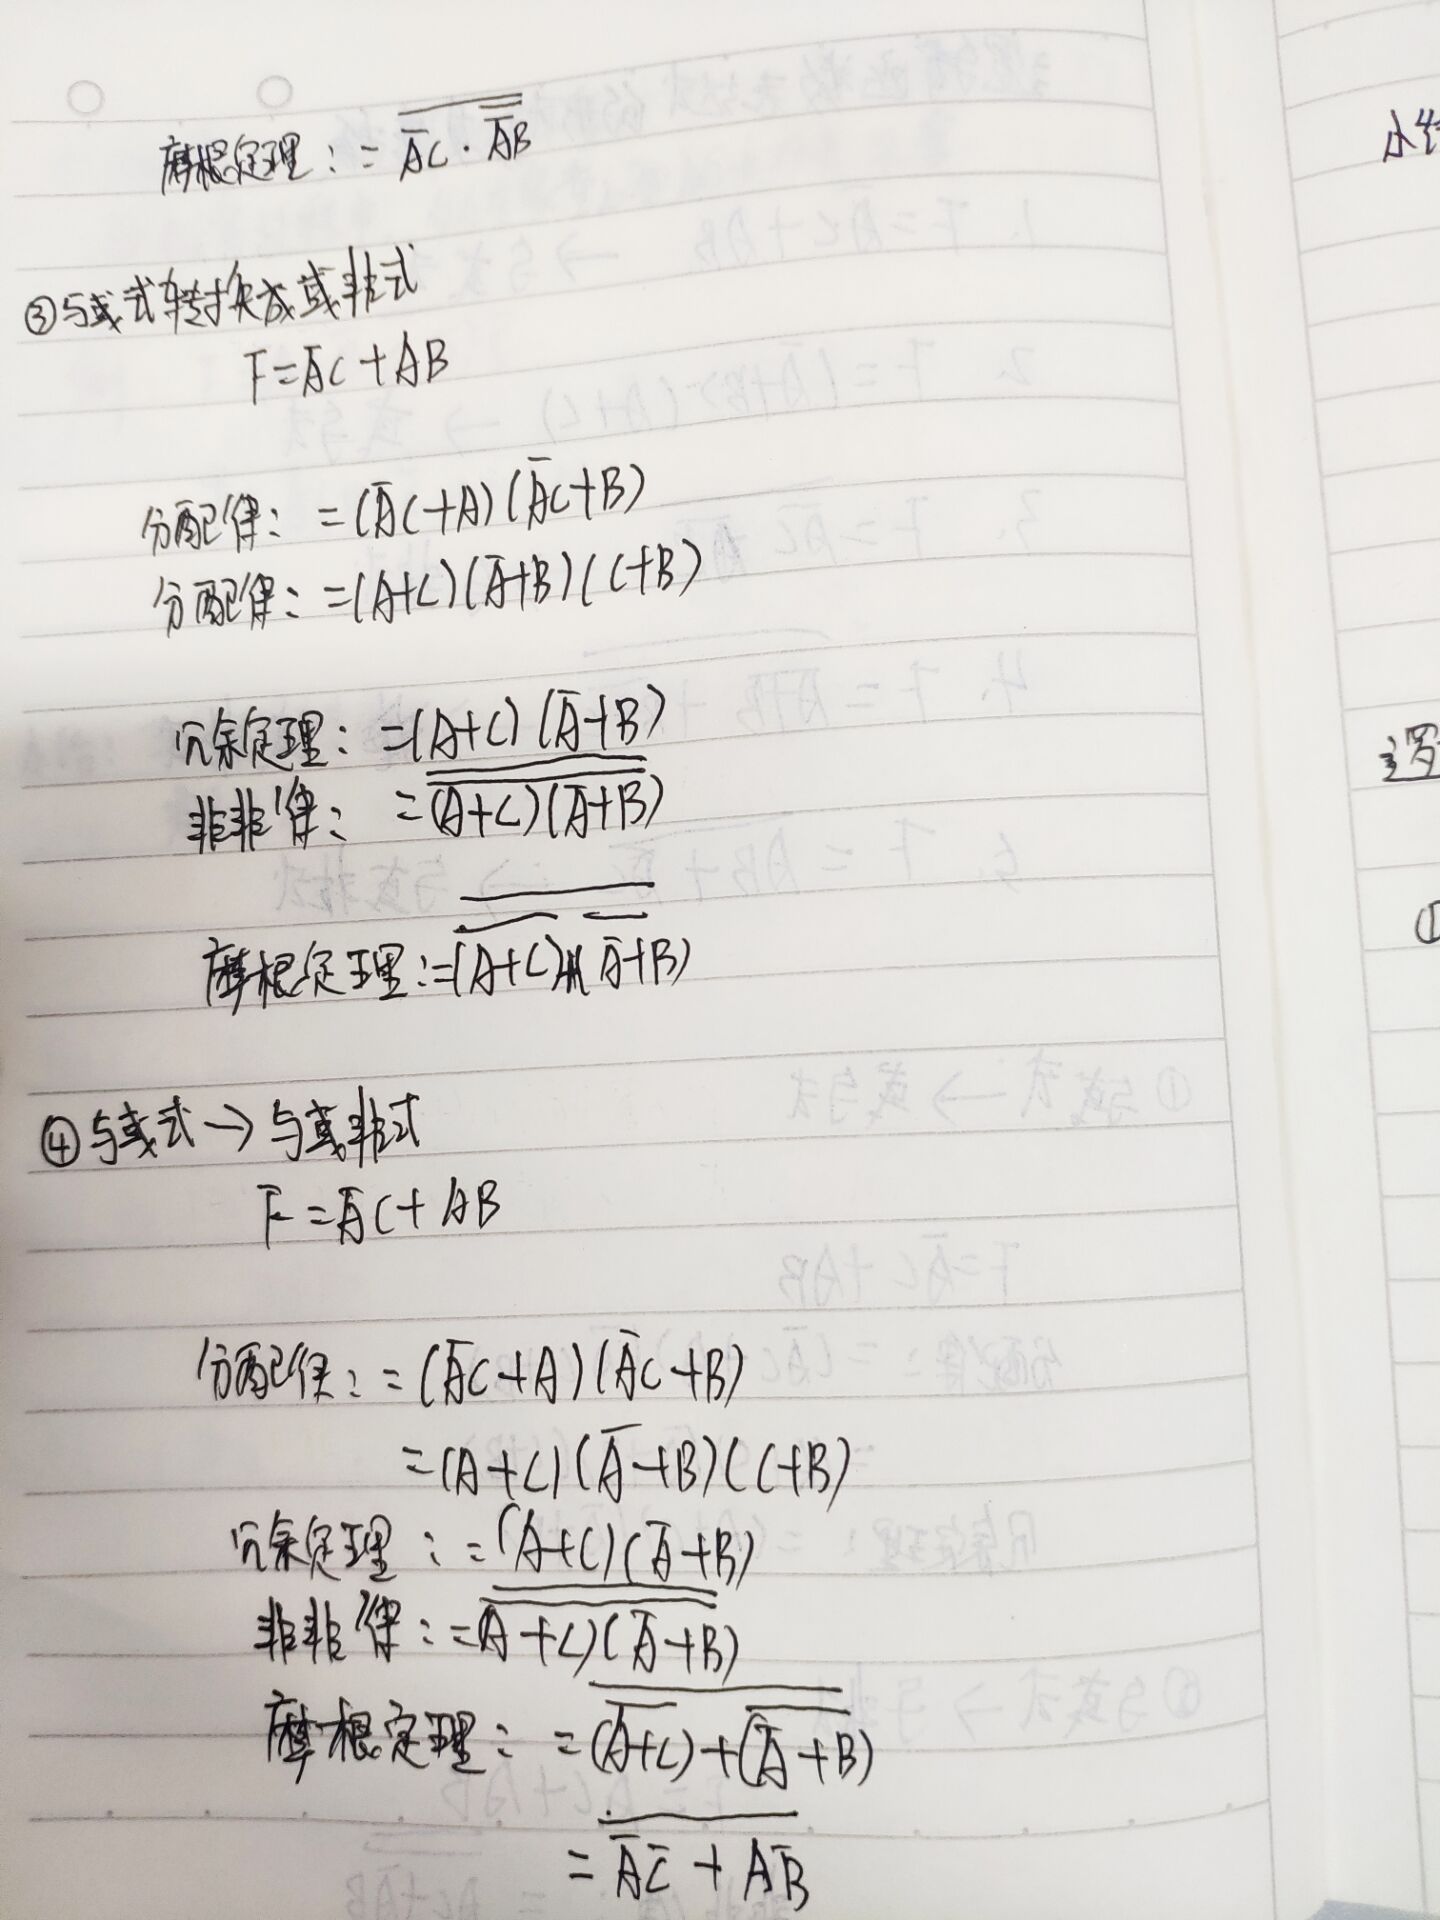 摩根定理：= \overline{\overline{\overline{A}C} · \overline{\overline{A}B}}
③与或式转换成或非式
F=\overline{A}C+AB
分配律：=(\overline{A}C+A)(\overline{A}C+B)
分配律：=(A+C)(\overline{A}+B)(C+B)
冗余定理：=(A+C)(\overline{A}+B)
非非律：=\overline{\overline{(A+C)(\overline{A}+B)}}
摩根定理：=\overline{\overline{(A+C)}+\overline{(\overline{A}+B)}}
④与或式→与或非式
F=\overline{A}C+AB
分配律：=(\overline{A}C+A)(\overline{A}C+B)
=(A+C)(\overline{A}+B)(C+B)
冗余定理：=(A+C)(\overline{A}+B)
非非律：=\overline{\overline{(A+C)(\overline{A}+B)}}
摩根定理：=\overline{\overline{(A+C)}+\overline{(\overline{A}+B)}}
=\overline{\overline{A}\overline{C}+A\overline{B}}
①